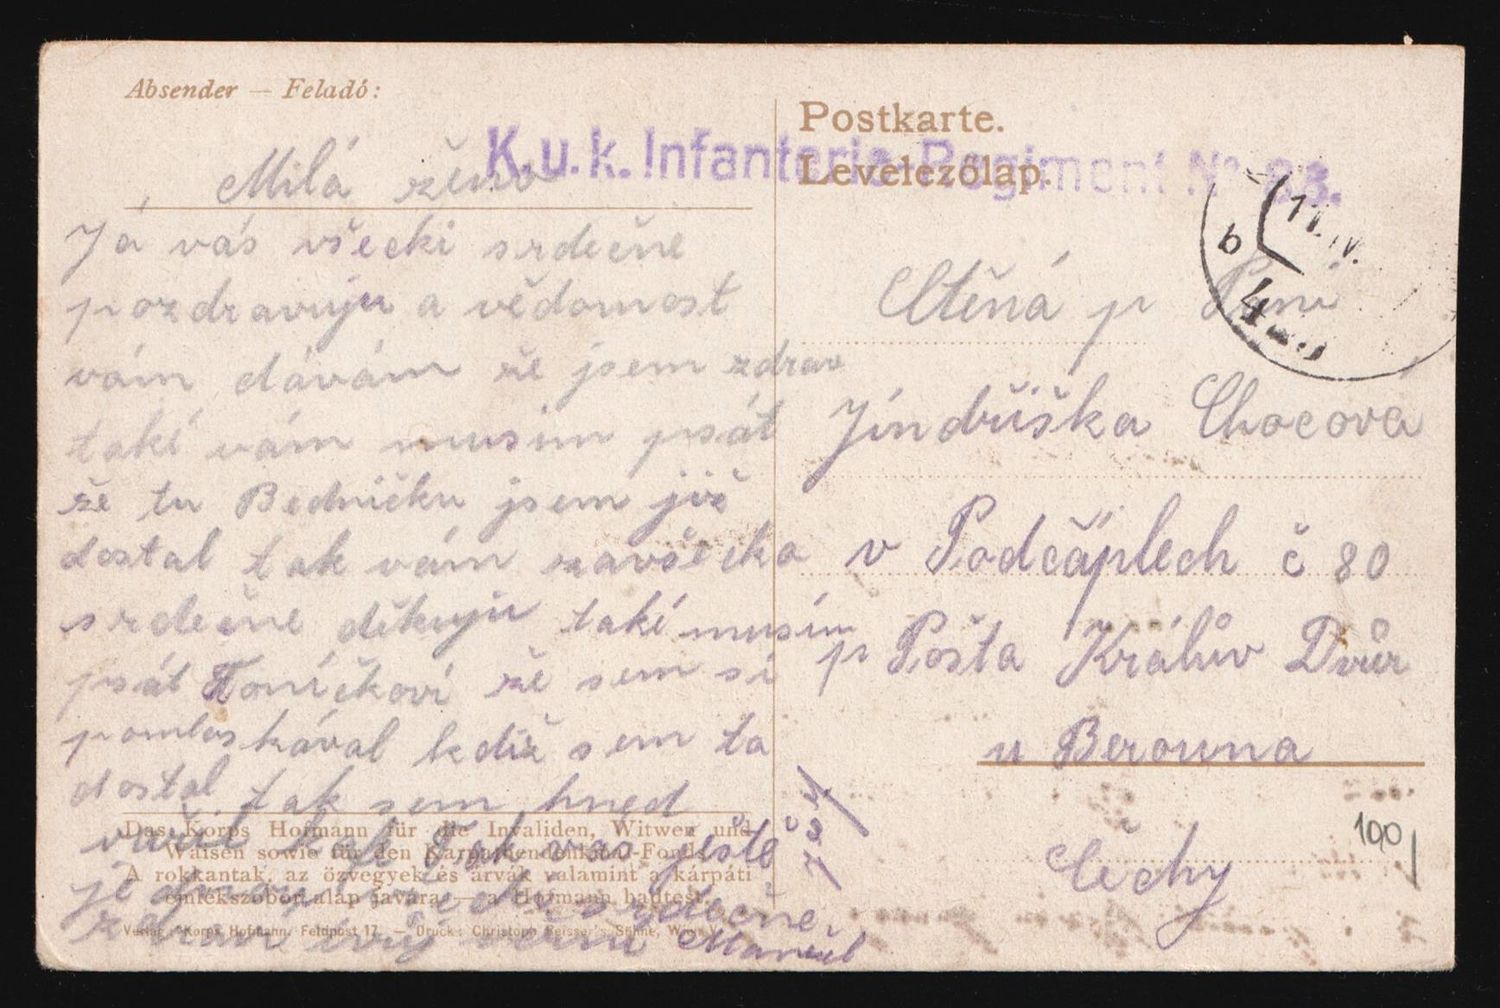 Absender — Feladó:
Postkarte.
Levelezőlap.
K.u.k. Infanterie-Regiment No 88.
11.IV.
b
Milá ženo
Já vás všecki srdečně
pozdravuju a vědomost
vám dávám že jsem zdrav
také vám musim psát
že tu Bedničku jsem již
dostal tak vám zavšecko
srdečně děkuju také musím
psát Toníčkoví že sem si
pomlaskával kdiž sem to
dostal tak sem hned
vařil tak vas ještě
jednou srdečně
zdraví tvůj věrní Manžel
Ctěná p Paní
Jíndřiška Chocová
v Podčáplech č 80
p Pošta Králův Dvůr
u Berouna
Čechy
100
Das Korps Hofmann für die Invaliden, Witwen und
Waisen sowie für den Karpathendenkmal-Fonds.
A rokkantak, az özvegyek és árvák valamint a kárpáti
emlékszobor alap javára — a Hofmann hadtest.
Verlag: Korps Hofmann, Feldpost 17. — Druck: Christoph Reisser's Söhne, Wien V.